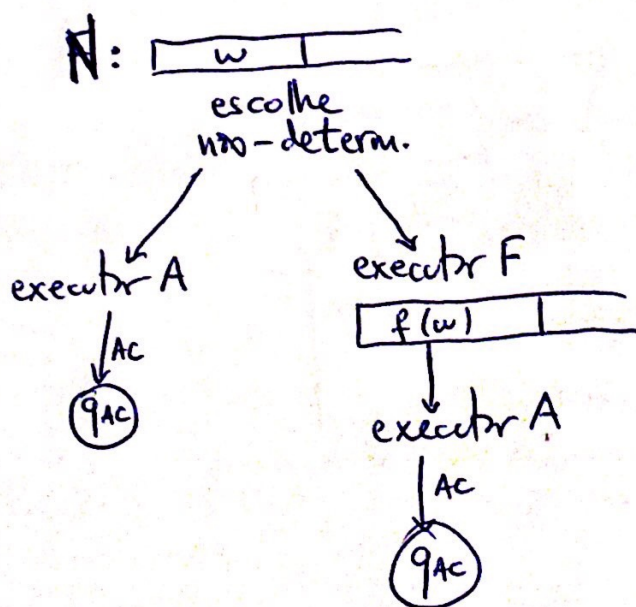 N: w
escolhe
não-determ.
executar A
executar F
AC
f(w)
qAC
executar A
AC
qAC